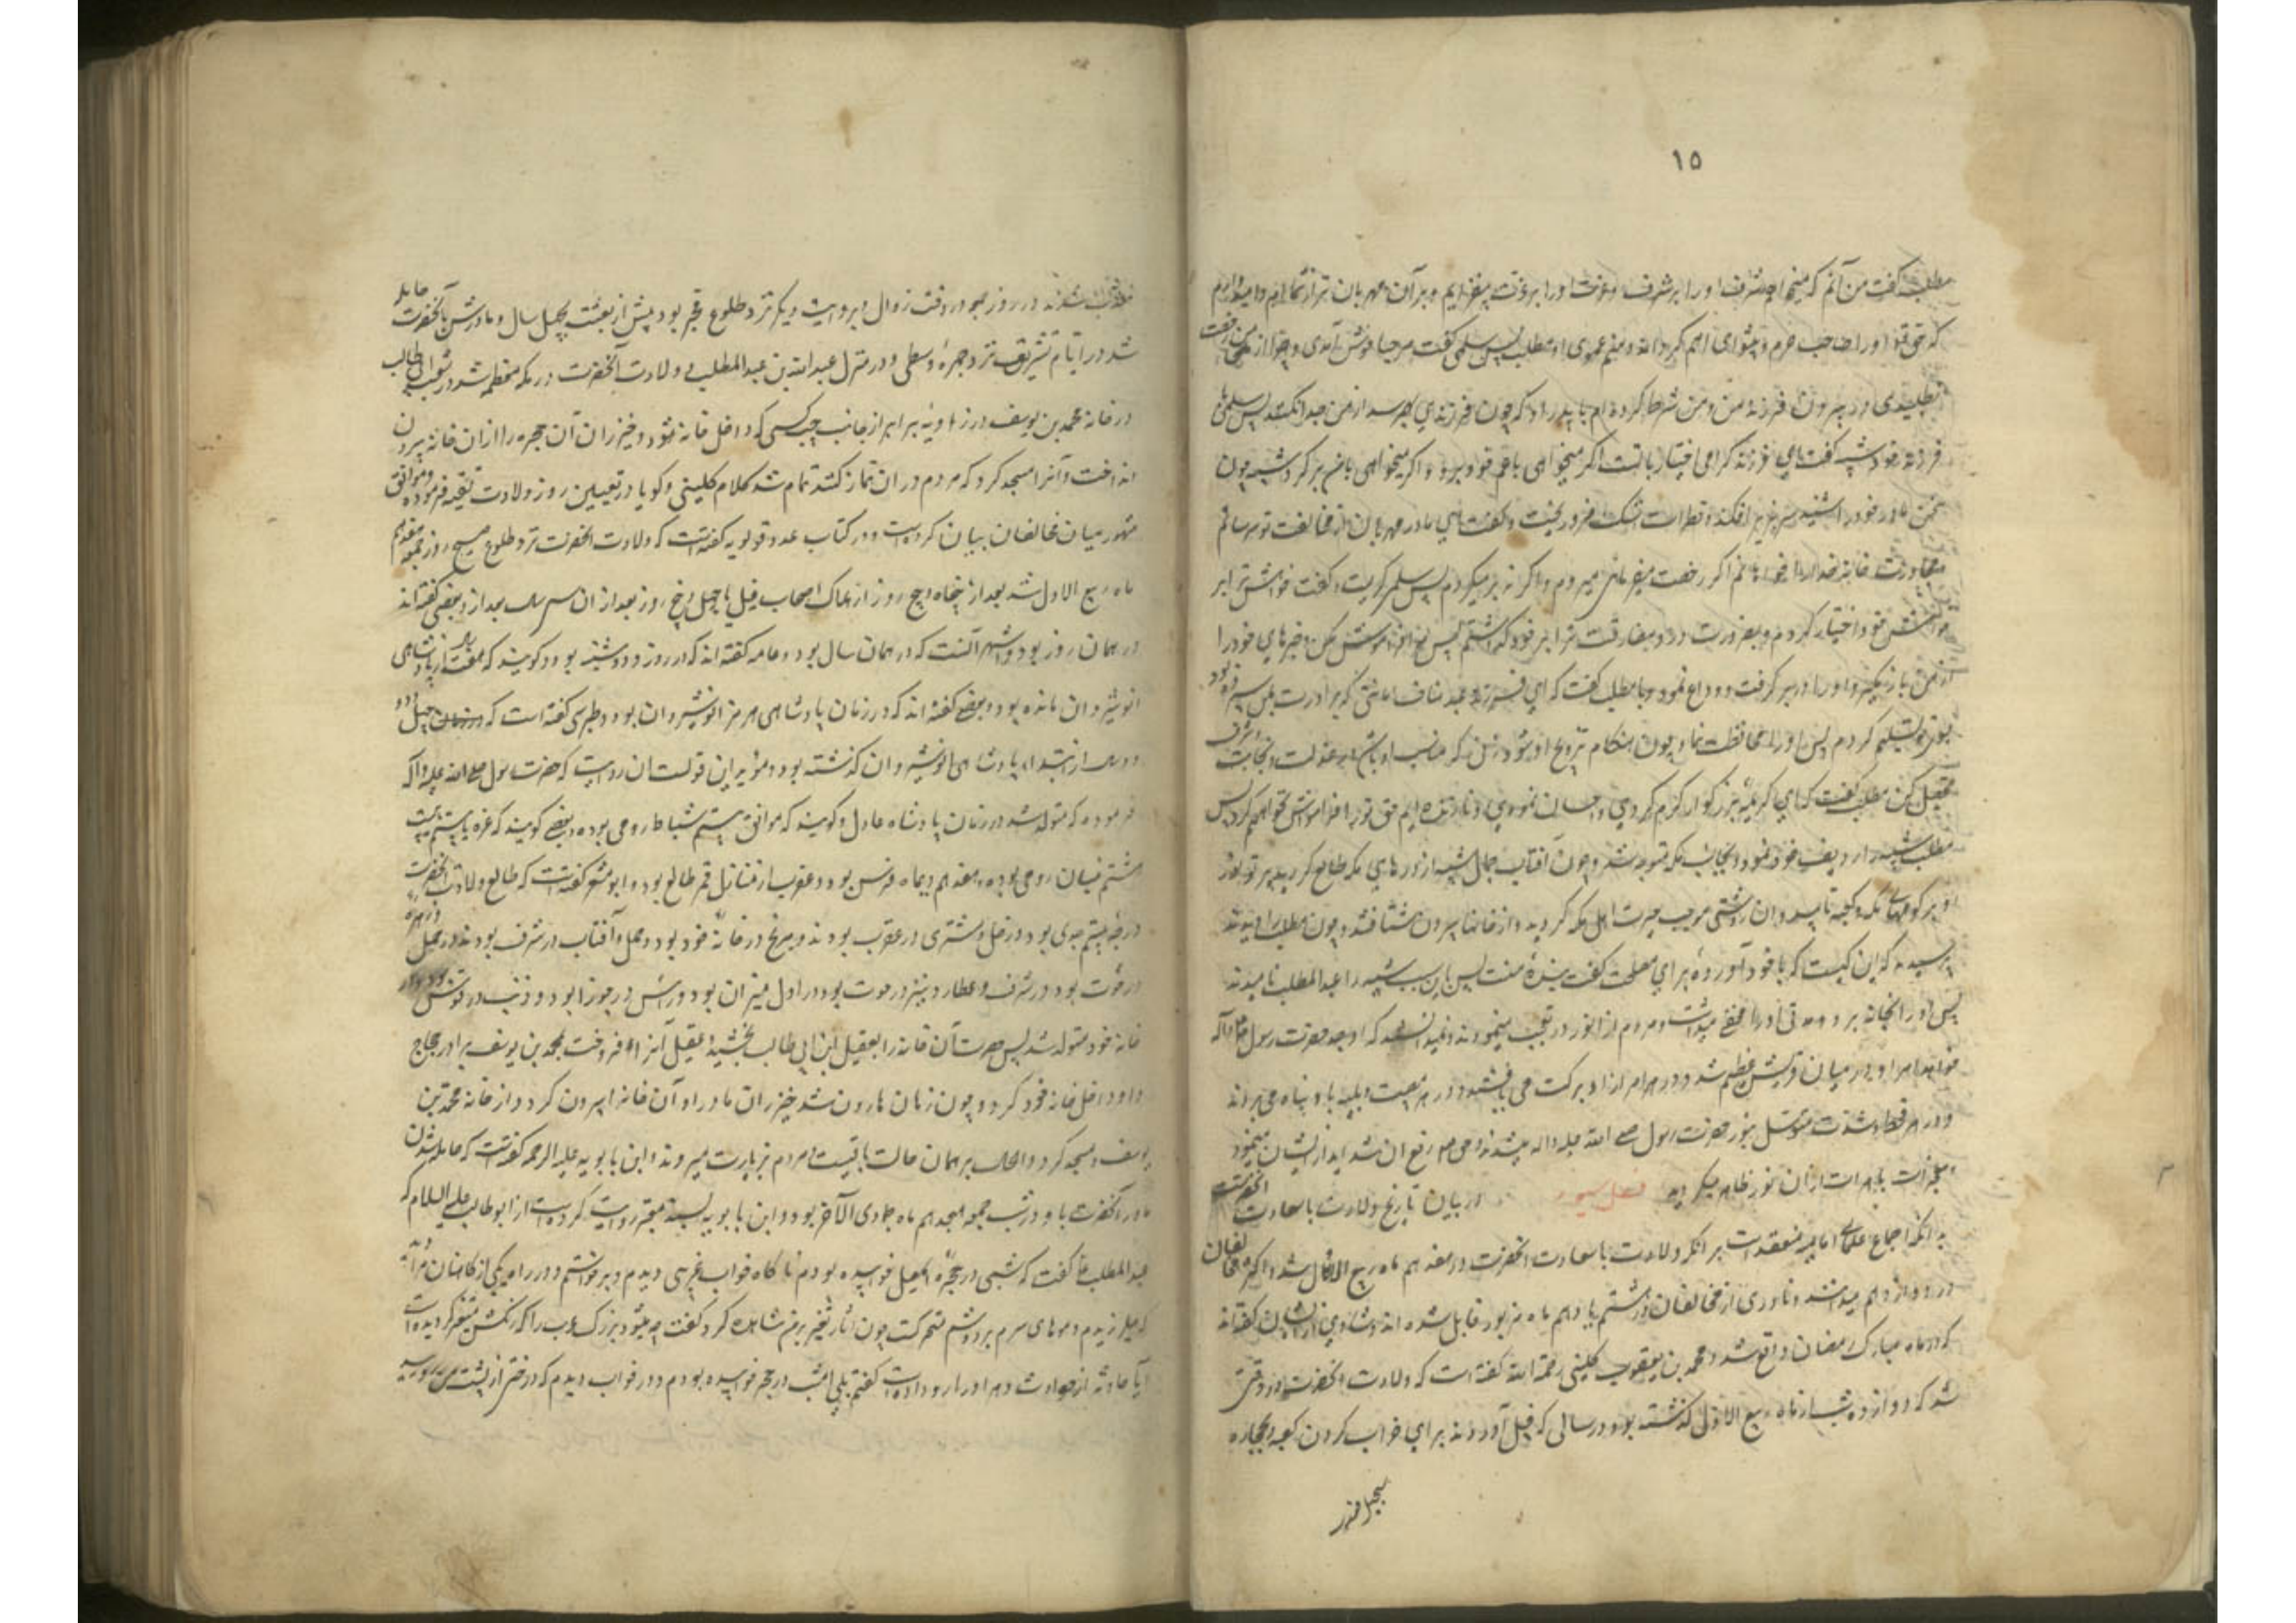 ۱۵
مطلب گفت من آنم که میخواهم شرف او را بر شرف و عزت او را بر عزت بیفزایم و بر آن مهربان تر از شمایم و امیدوارم
که حق تعالی او را صاحب حرم و پیشوای امم گرداند و منم عموی او مطلب پس سلمی گفت مرحبا خوش آمدی و چرا از من رخصت
نطلبیدی در بردن فرزند من و من شرط کرده‌ام با پدر او که چون فرزندی بهم رسد از من جدا نکند پس سلمی با
فرزند خود شیبه گفت ای فرزند گرامی اختیار با تست اگر میخواهی با عم خود برو و اگر میخواهی با من برگرد شیبه چون
سخن مادر خود را شنید سر بزیر افکند و قطرات اشک فرو ریخت و گفت ای مادر مهربان از مخالفت تو میترسانم
مجاورت خانه خدا را خواهانم اگر رخصت میفرمائی میروم و اگر نه بر میگردم پس سلمی گریست و گفت خواهش ترا بر
خواهش خود اختیار کردم و بضرورت درد مفارقت ترا بر خود گذاشتم پس مرا فراموش مکن و خبرهای خود را
از من باز مگیر و او را در بر گرفت و وداع نمود و با مطلب گفت که ای فرزند عبد مناف امانتی که برادرت بمن سپرده بود
بتو تسلیم کردم پس او را محافظت نما و چون هنگام تزویج او شود زنی که مناسب او باشد در عزت و نجابت و شرف
تحصیل کن مطلب گفت که ای کریمه بزرگوار کرم کردی و احسان نمودی و تا زنده ایم حق ترا فراموش نخواهم کرد پس
مطلب شیبه را ردیف خود نمود و بجانب مکه متوجه شد و چون آفتاب جمال شیبه از درهای مکه طالع گردید پرتو نور
او بر کوههای مکه و کعبه تابید و آن روشنی موجب حیرت اهل مکه گردید و از خانها بیرون شتافتند و چون مطلب را دیدند
پرسیدند که این کیست که با خود آورده برای مصلحت گفت بنده منست پس باین سبب شیبه را عبدالمطلب نامیدند
پس او را بخانه برد و مدتی او را مخفی میداشت و مردم از نور او تعجب مینمودند و نمیدانستند که او جد حضرت رسول ص و آله
خواهد بود و در میان قریش عظیم شد و در هر امر از او برکت می یافتند و در هر مصیبت و بلیه باو پناه می‌بردند
و در هر قحط و شدت متوسل بنور حضرت رسول صلی الله علیه واله میشدند و حق تعالی رفع آن شداید از ایشان مینمود
و معجزات باهرات از آن نور ظاهر میگردید فصل سیوم در بیان تاریخ ولادت با سعادت آنحضرتست
بدانکه اجماع علمای امامیه منعقد است بر آنکه ولادت با سعادت آنحضرت در هفدهم ماه ربیع الاول شد و اکثر مخالفان
در دوازدهم میدانند و نادری از مخالفان در هشتم یا دهم ماه مزبور قایل شده اند و شاذی از ایشان گفته‌اند
که در ماه مبارک رمضان واقع شد و محمد بن یعقوب کلینی رحمة الله گفته است که ولادت آنحضرت در وقتی
شد که دوازده شب از ماه ربیع الاول گذشته بود در سالی که فیل آوردند برای خراب کردن کعبه و بحجاره
سجیل معذب
معذب شدند در روز جمعه در وقت زوال و بروایت دیگر نزد طلوع فجر بود پیش از بعثت بچهل سال و مادرش بآنحضرت حامله
شد در ایام تشریق نزد جمره وسطی و در منزل عبدالله بن عبدالمطلب و ولادت آنحضرت در مکه معظمه شد در شعب ابی طالب
در خانه محمد بن یوسف در زاویه برابر از جانب چپ کسی که داخل خانه شود و خیزران آن حجره را از آن خانه بیرون
انداخت و آنرا مسجد کرد که مردم در آن نماز کنند تمام شد کلام کلینی و گویا در تعیین روز ولادت تقیه فرموده و موافق
مشهور میان مخالفان بیان کرده است و در کتاب عدد قویه گفته است که ولادت آنحضرت نزد طلوع صبح روز جمعه هفدهم
ماه ربیع الاول شد بعد از پنجاه و پنج روز از هلاک اصحاب فیل یا چهل و پنج روز بعد از آن سی سال بعد از و بعضی گفته‌اند
در همان روز بود و اشهر آنست که در همان سال بود و عامه گفته‌اند که در روز دوشنبه بود و گویند که هفت سال از پادشاهی
انوشیروان مانده بود و بعضی گفته‌اند که در زمان پادشاهی هرمز انوشیروان بود و طبری گفته است که چهل و دو
سال از ابتدای پادشاهی انوشیروان گذشته بود و مؤید این قولست آن روایت که حضرت رسول صلی الله علیه و آله
فرموده که متولد شدم در زمان پادشاه عادل و گویند که موافق بیستم شباط رومی بوده و بعضی گویند که غره یا بیستم یا بیست
هشتم نیسان رومی بوده و هفدهم دیماه فرس بود و عقرب از منازل قمر طالع بود و ابومعشر گفته است که طالع ولادت آنحضرت
درجه بیستم جدی بود و زحل و مشتری در عقرب بودند و مریخ در خانه خود بود در حمل و آفتاب در شرف بود در حمل و زهره
در حوت بود در شرف و عطارد نیز در حوت بود و در اول میزان بود و رأس در جوزا بود و ذنب در قوس بود و در
خانه خود متولد شد پس حضرت آن خانه را بعقیل ابن ابی طالب بخشید و عقیل آنرا فروخت بمحمد بن یوسف برادر حجاج
و او داخل خانه خود کرد و چون زمان هارون شد خیزران مادر او آن خانه را بیرون کرد از خانه محمد بن
یوسف و مسجد کرد و الحال بر همان حالت باقیست و مردم بزیارت میروند و ابن بابویه علیه الرحمه گفته است که حامله شدن
مادر آنحضرت باو در شب جمعه هیجدهم ماه جمادی الآخر بود و ابن بابویه بسند معتبر روایت کرده است از ابوطالب علیه السلام که
عبدالمطلب ع گفت که شبی در حجره اسمعیل خوابیده بودم ناگاه خواب غریبی دیدم و برخواستم و در راه یکی از کاهنان مرا دید
که میلرزیدم و موهای سرم بر دوشم متحرکست چون آثار تغیر بر من مشاهده کرد گفت چه میشود بزرگ عرب را که رنگش متغیر گردیده است
آیا حادثه از حوادث دهر او را رو داده است گفتم بلی امشب در حجر خوابیده بودم و در خواب دیدم که درختی از پشت من روییده